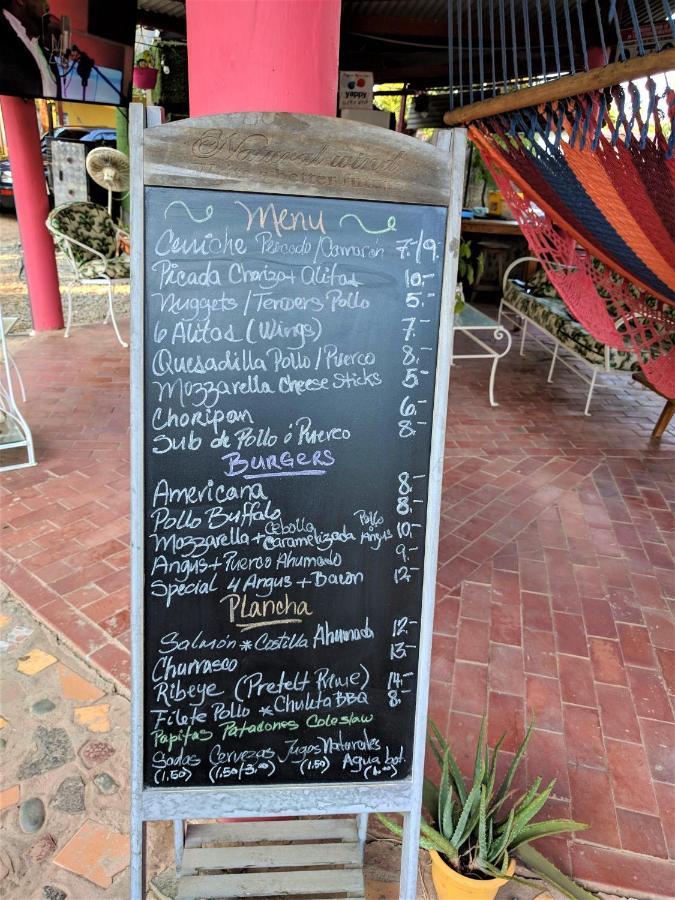 Natural wind
better
yappy
Menu
Ceviche Pescado/Camarón 7-/9.
Picada Chorizo+Alitas 10.-
Nuggets/Tenders Pollo 5.-
6 Alitas (Wings) 7.-
Quesadilla Pollo/Puerco 8.-
Mozzarella Cheese Sticks 5.-
Choripan 6.-
Sub de Pollo ó Puerco 8.-
BURGERS
Americana 8.-
Pollo Buffalo 8.-
Mozzarella+Cebolla Caramelizada Pollo Angus 10.-
Angus+Puerco Ahumado 9.-
Special 4 Angus+Bacon 12.-
Plancha
Salmón * Costilla Ahumada 12.-
Churrasco 13.-
Ribeye (Pretelt Prime) 14.-
Filete Pollo * Chuleta BBQ 8.-
Papitas Patacones Coleslaw
Sodas Cervezas Jugos Naturales Agua bot.
(1.50) (1.50/3.00) (1.50) (1.00)